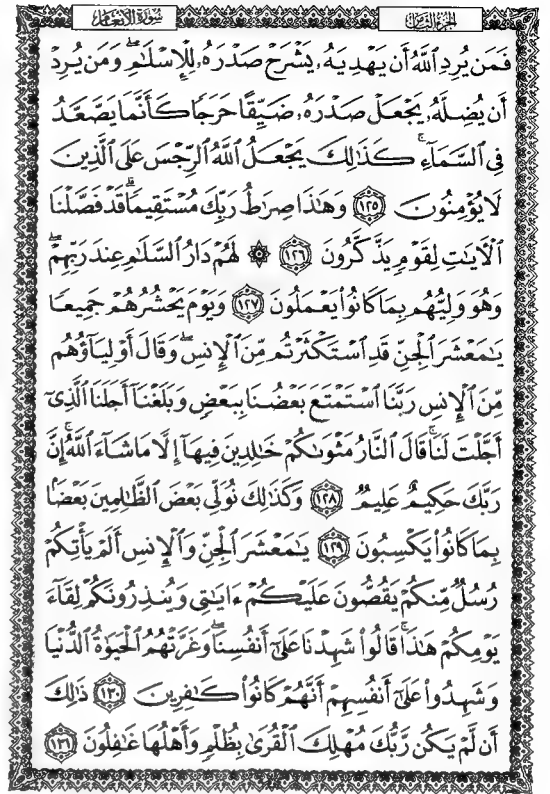 الجزء الثامن
سورة الأنعام
فَمَن يُرِدِ ٱللَّهُ أَن يَهْدِيَهُۥ يَشْرَحْ صَدْرَهُۥ لِلْإِسْلَٰمِۖ وَمَن يُرِدْ
أَن يُضِلَّهُۥ يَجْعَلْ صَدْرَهُۥ ضَيِّقًا حَرَجًا كَأَنَّمَا يَصَّعَّدُ
فِى ٱلسَّمَآءِۚ كَذَٰلِكَ يَجْعَلُ ٱللَّهُ ٱلرِّجْسَ عَلَى ٱلَّذِينَ
لَا يُؤْمِنُونَ ١٢٥ وَهَٰذَا صِرَٰطُ رَبِّكَ مُسْتَقِيمًاۗ قَدْ فَصَّلْنَا
ٱلْءَايَٰتِ لِقَوْمٍ يَذَّكَّرُونَ ١٢٦ ۞ لَهُمْ دَارُ ٱلسَّلَٰمِ عِندَ رَبِّهِمْۖ
وَهُوَ وَلِيُّهُم بِمَا كَانُوا۟ يَعْمَلُونَ ١٢٧ وَيَوْمَ يَحْشُرُهُمْ جَمِيعًا
يَٰمَعْشَرَ ٱلْجِنِّ قَدِ ٱسْتَكْثَرْتُم مِّنَ ٱلْإِنسِۖ وَقَالَ أَوْلِيَآؤُهُم
مِّنَ ٱلْإِنسِ رَبَّنَا ٱسْتَمْتَعَ بَعْضُنَا بِبَعْضٍ وَبَلَغْنَآ أَجَلَنَا ٱلَّذِىٓ
أَجَّلْتَ لَنَاۚ قَالَ ٱلنَّارُ مَثْوَىٰكُمْ خَٰلِدِينَ فِيهَآ إِلَّا مَا شَآءَ ٱللَّهُۗ إِنَّ
رَبَّكَ حَكِيمٌ عَلِيمٌ ١٢٨ وَكَذَٰلِكَ نُوَلِّى بَعْضَ ٱلظَّٰلِمِينَ بَعْضًۢا
بِمَا كَانُوا۟ يَكْسِبُونَ ١٢٩ يَٰمَعْشَرَ ٱلْجِنِّ وَٱلْإِنسِ أَلَمْ يَأْتِكُمْ
رُسُلٌ مِّنكُمْ يَقُصُّونَ عَلَيْكُمْ ءَايَٰتِى وَيُنذِرُونَكُمْ لِقَآءَ
يَوْمِكُمْ هَٰذَاۚ قَالُوا۟ شَهِدْنَا عَلَىٰٓ أَنفُسِنَاۖ وَغَرَّتْهُمُ ٱلْحَيَوٰةُ ٱلدُّنْيَا
وَشَهِدُوا۟ عَلَىٰٓ أَنفُسِهِمْ أَنَّهُمْ كَانُوا۟ كَٰفِرِينَ ١٣٠ ذَٰلِكَ
أَن لَّمْ يَكُن رَّبُّكَ مُهْلِكَ ٱلْقُرَىٰ بِظُلْمٍ وَأَهْلُهَا غَٰفِلُونَ ١٣١